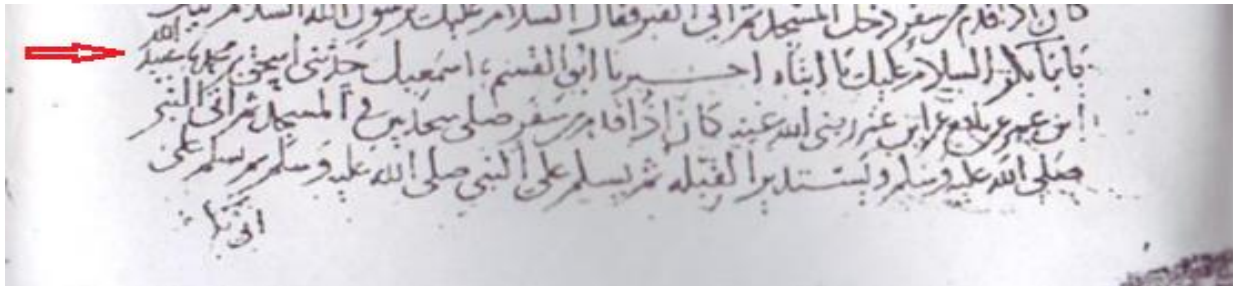 كان اذا قدم من سفر دخل المسجد ثم اتى القبر فقال السلام عليك يرسول الله السلام عليك
يابا بكر السلام عليك يا ابتاه اخبرنا ابو القسم نا اسمعيل حدثنى اسحق بن محمد نا عبيد الله
ابن عمر عن نافع عن ابن عمر رضى الله عنه كان اذا قدم من سفر صلى سجدتين فى المسجد ثم اتى النبى
صلى الله عليه وسلم ويستدبر القبله ثم يسلم على النبى صلى الله عليه وسلم ثم يسلم على
ابى بكر